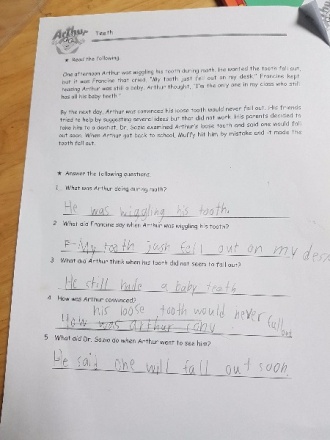 Arthur
Teeth
★ Read the following.
One afternoon Arthur was wiggling his tooth during math. He wanted the tooth to fall out,
but it was Francine that cried, "My tooth just fell out on my desk!" Francine kept
teasing Arthur was still a baby. Arthur thought, "I'm the only one in my class who still
has all his baby teeth."
By the next day, Arthur was convinced his loose tooth would never fall out. His friends
tried to help by suggesting several ideas but that did not work. His parents decided to
take him to a dentist. Dr. Sozio examined Arthur's loose tooth and said one would fall
out soon. When Arthur got back to school, Muffy hit him by mistake and it made the
tooth fall out.
★ Answer the following questions.
1. What was Arthur doing during math?
He was wiggling his tooth.
2. What did Francine say when Arthur was wiggling his tooth?
My tooth jush fell out on my desk
3. What did Arthur think when his tooth did not seem to fall out?
He still have a baby teath
4. How was Arthur convinced?
his loose tooth would never fall out
How was arthur
5. What did Dr. Sozio do when Arthur went to see him?
He said one will fall out soon.